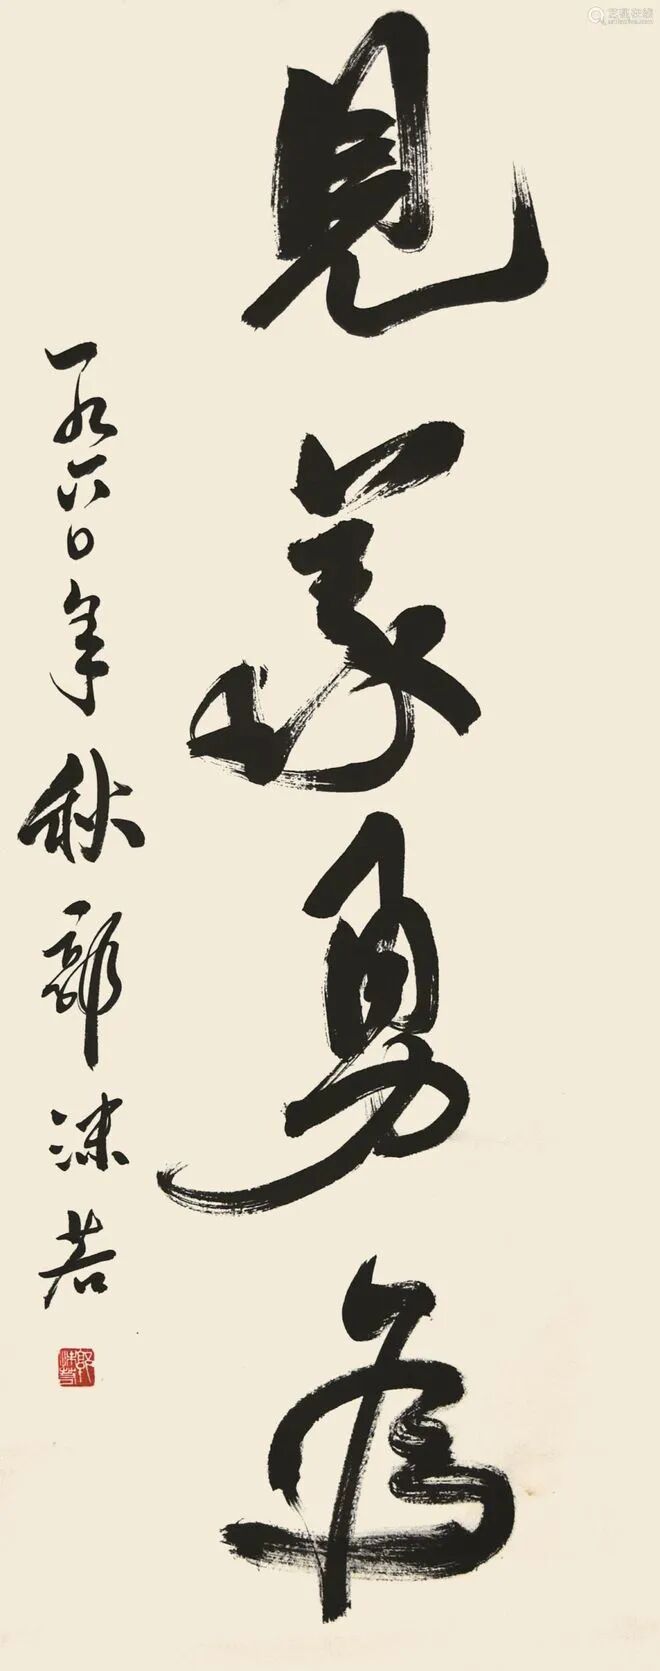 見義勇為
一九六〇年秋郭沫若
郭沫若
艺狐在线